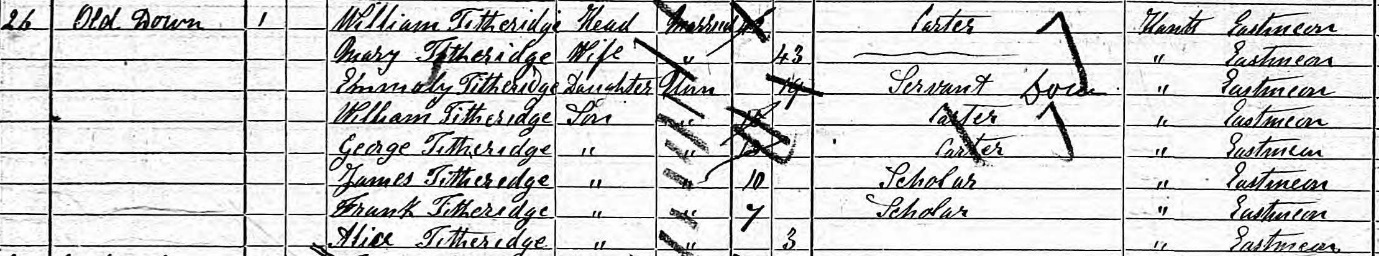 26 Old Down 1 William Titheridge Head Married Carter Hants Eastmeon
Mary Titheridge Wife " 43 " Eastmeon
Emmoly Titheridge Daughter Unn 19 Servant Dom " Eastmeon
William Titheridge Son " Carter " Eastmeon
George Titheridge " " Carter " Eastmeon
James Titheredge " " 10 Scholar " Eastmeon
Frank Titheridge " " 7 Scholar " Eastmeon
Alice Titheridge " " 3 " Eastmeon